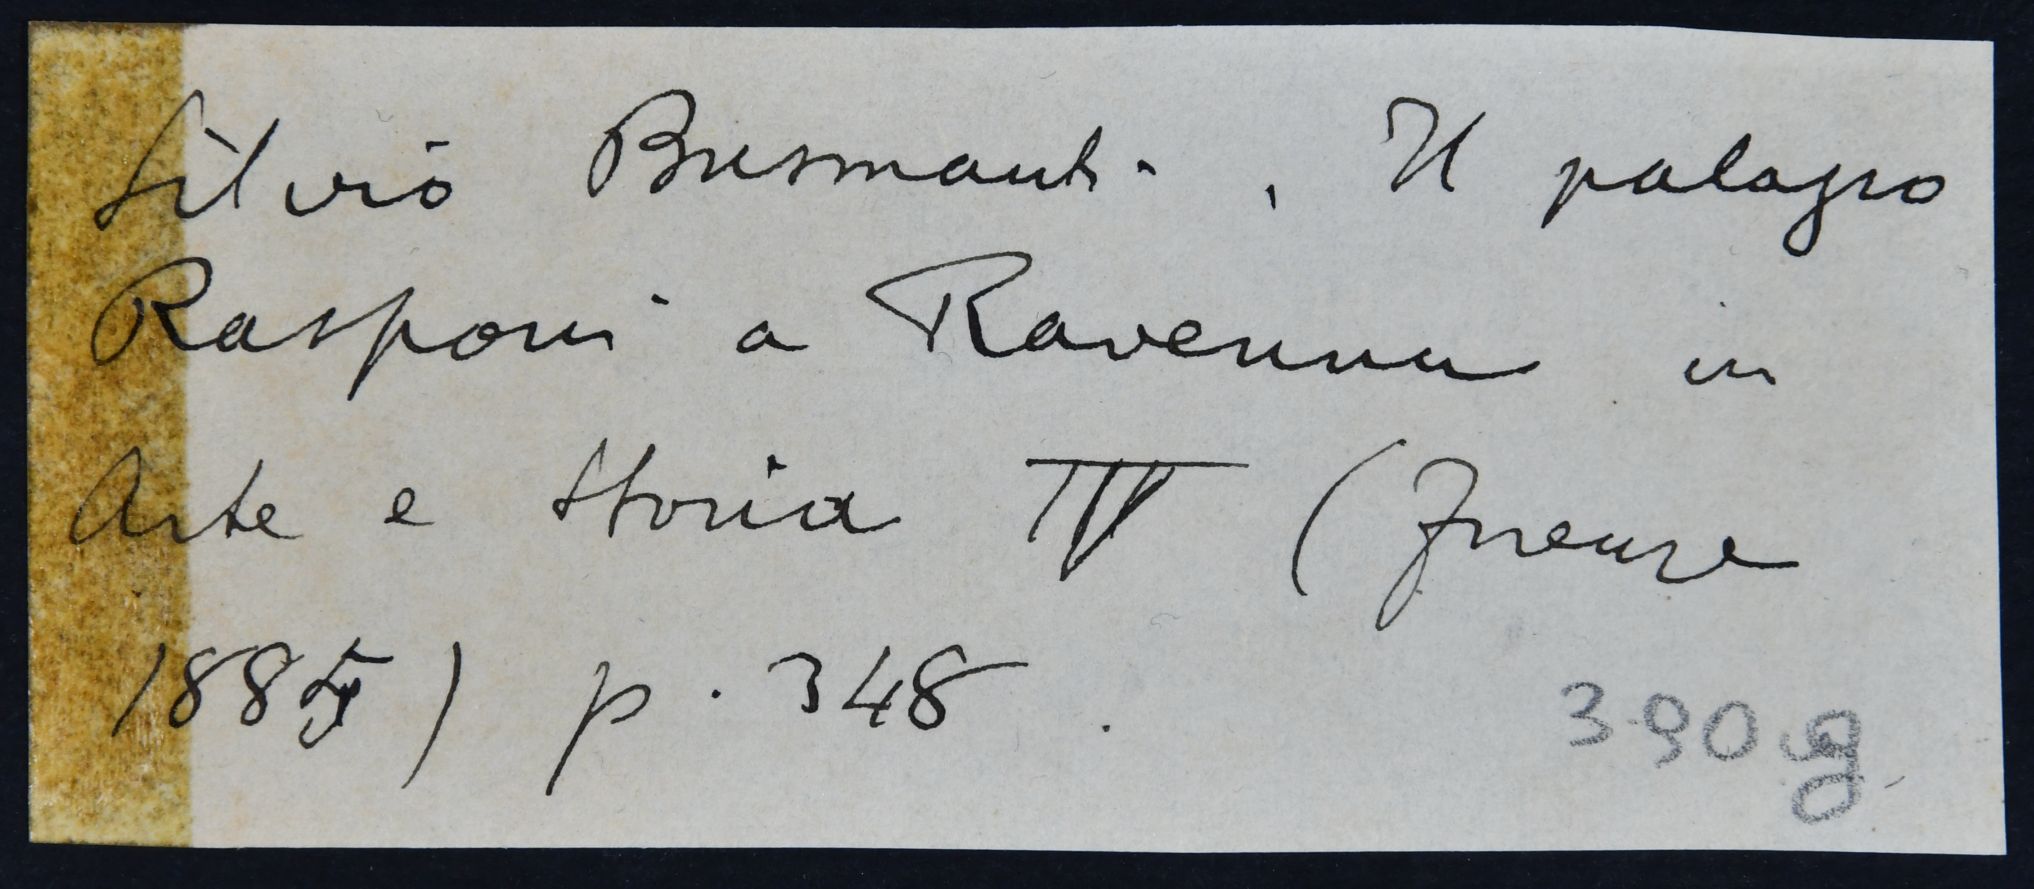 Silvio Busmanti, Il palazzo
Rasponi a Ravenna in
Arte e Storia IV (Firenze
1885) p. 348.
390 g